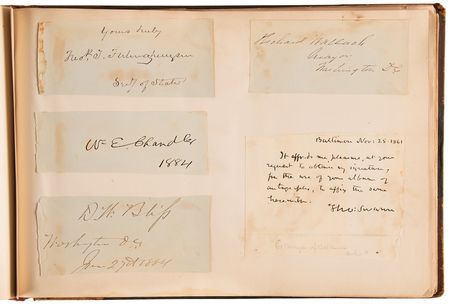 Yours truly
Fred. T. Frelinghuysen
Secy of State
Wm E. Chandler
1884
D. W. Bliss
Washington D.C.
Jan 27th 1884
Richard Wallach
Mayor
Washington D C
Baltimore Nov: 25 1861
It affords me pleasure, at your
request to obtain my signature,
for the use of your album of
autographs, to affix the same
hereunder.
Tho: Swann